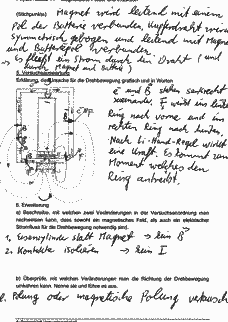 (Stichpunkte) Magnet wird leitend mit einem
Pol der Batterie verbunden, Kupferdraht wird
symmetrisch gebogen und leitend mit Magnet
und Batteriepol verbunden.
→ Es fließt ein Strom durch den Draht (und
durch Magnet und Batterie)
5. Versuchsauswertung
Erklärung der Ursache für die Drehbewegung grafisch und in Worten
und B stehen senkrecht
zueinander, F wirkt im linken
Ring nach vorne und im
rechten Ring nach hinten.
Nach Li-Hand-Regel wirkt
eine Kraft. Es kommt zum
Moment welches den
Ring antreibt.
6. Erweiterung
a) Beschreibe, mit welchen zwei Veränderungen in der Versuchsanordnung man
nachweisen kann, dass sowohl ein magnetisches Feld, als auch ein elektrischer
Stromfluss für die Drehbewegung notwendig sind.
1. Eisenzylinder statt Magnet → kein B
2. Kontakte isolieren → kein I
b) Überprüfe, mit welchen Veränderungen man die Richtung der Drehbewegung
umkehren kann. Nenne sie und führe es aus.
Polung oder magnetische Polung vertauschen